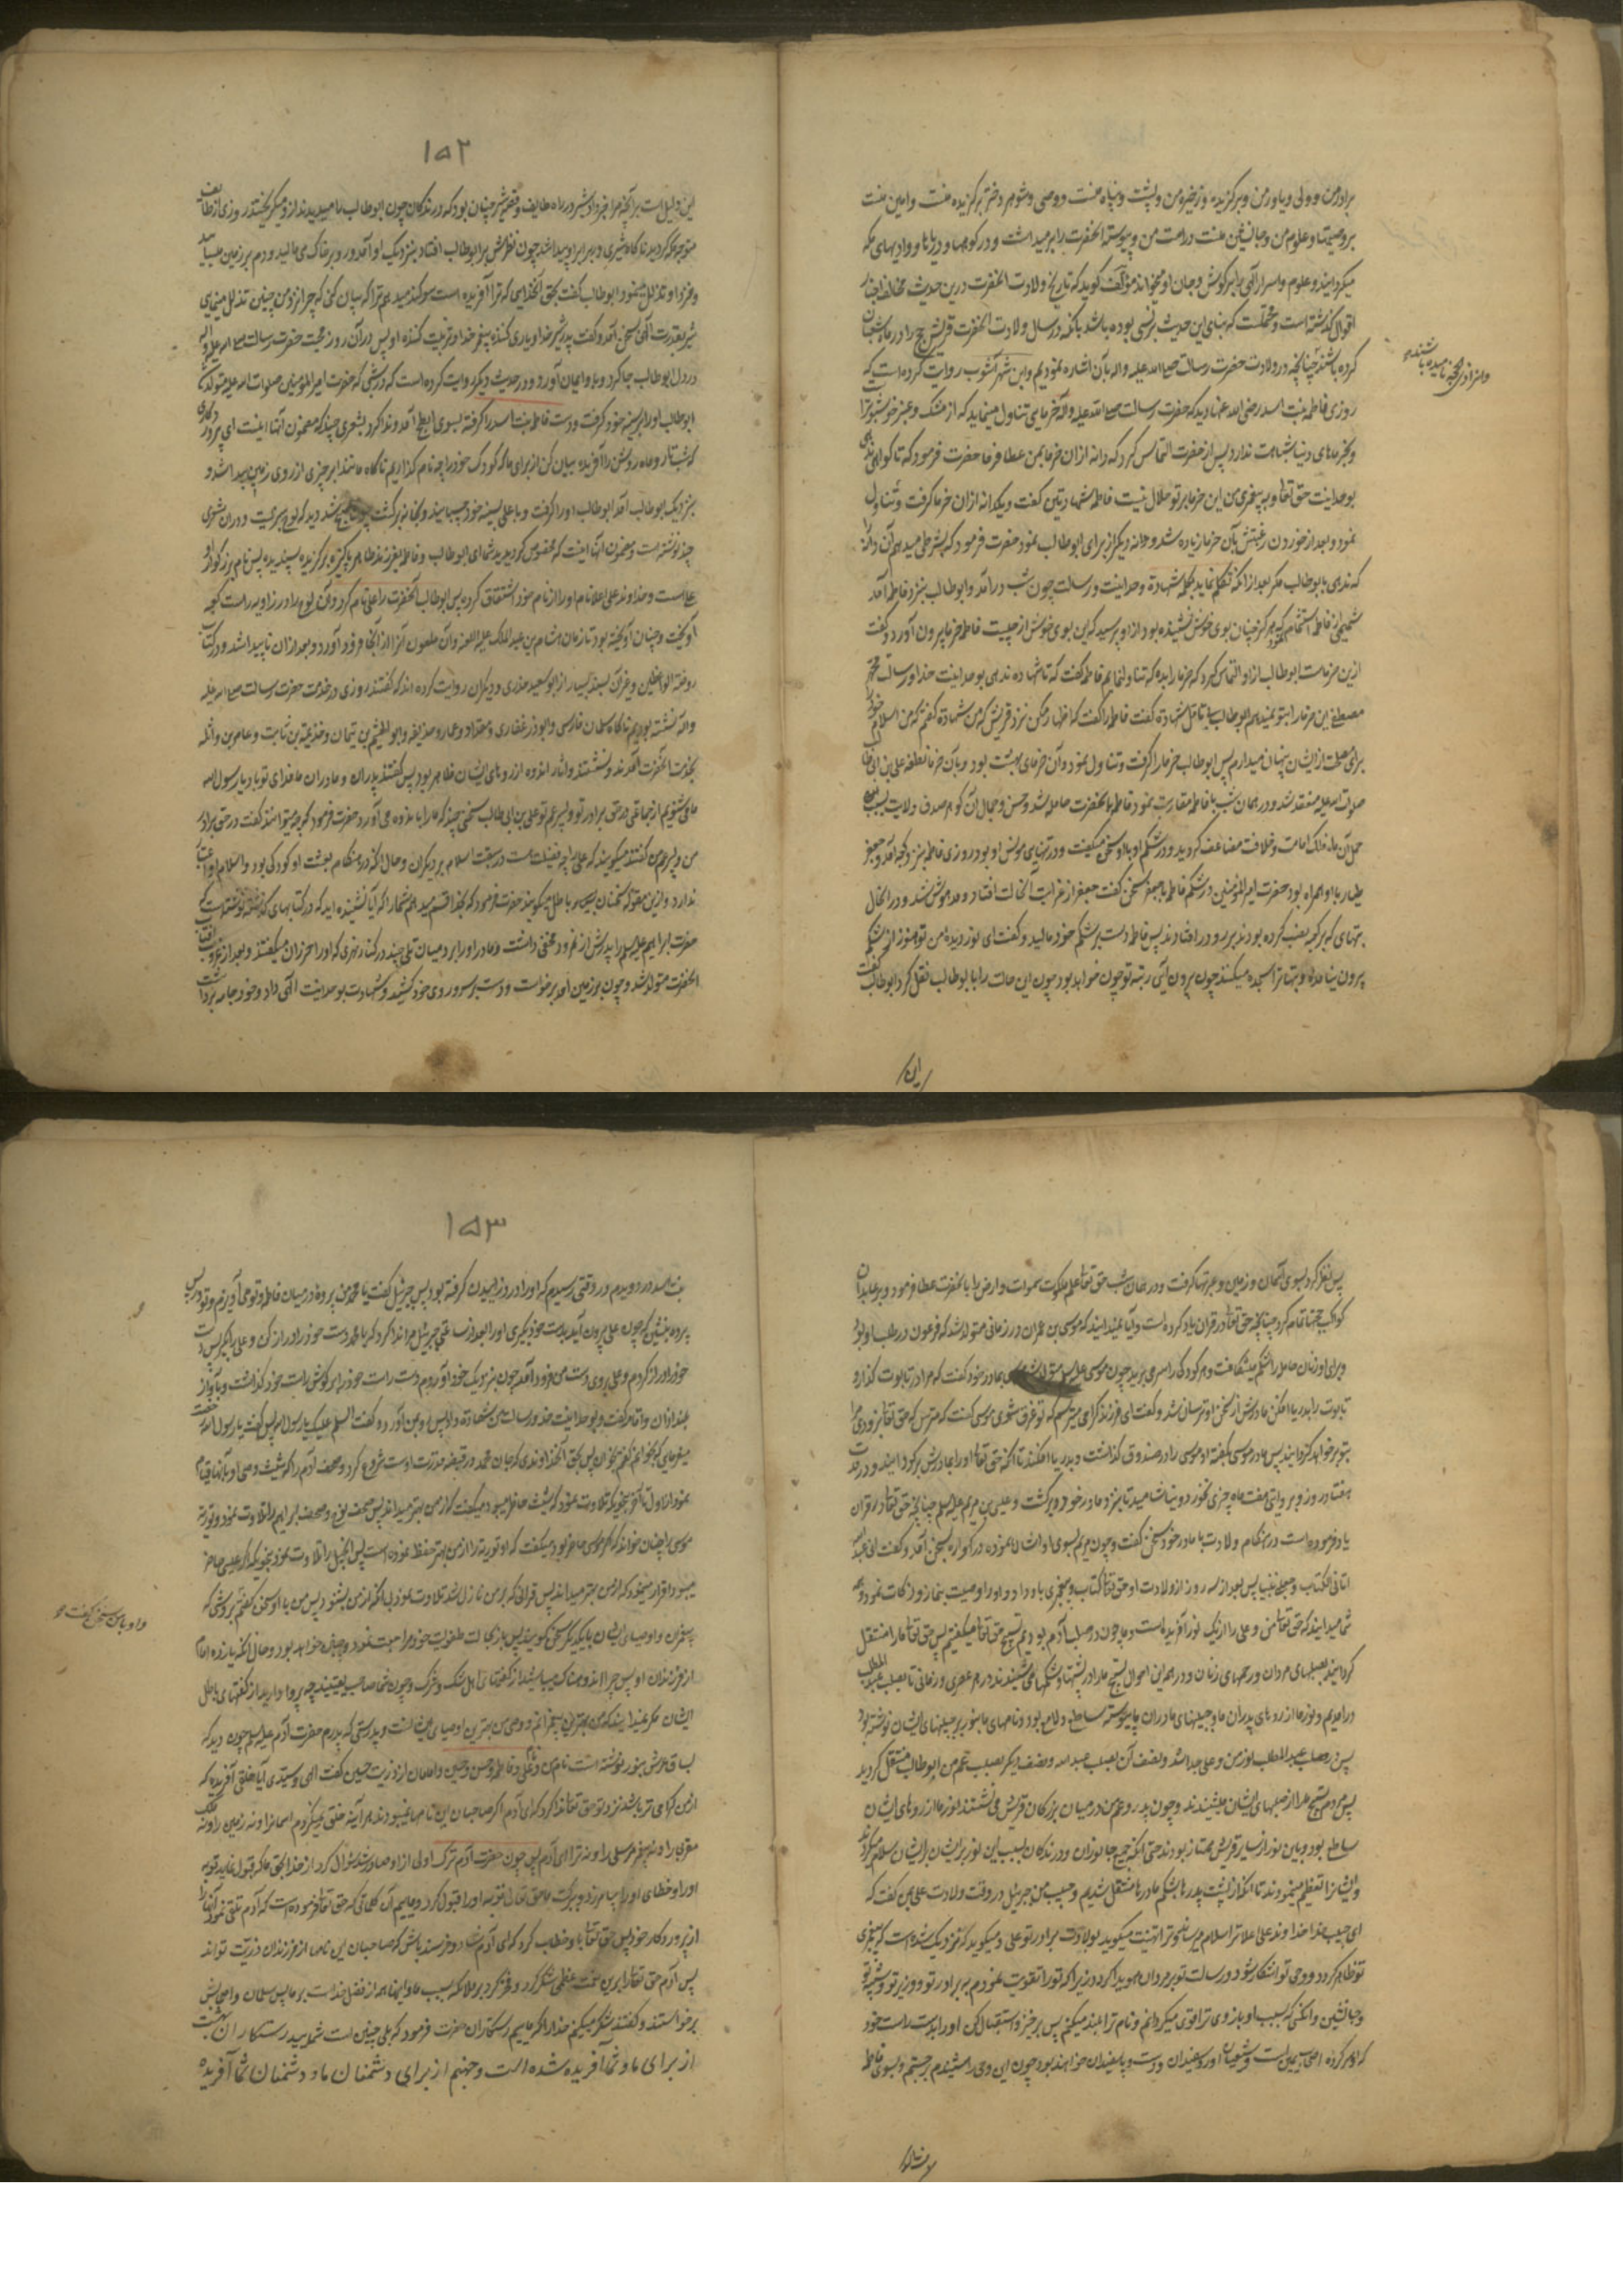 برادر من و ولی و یاور من و برگزیده و ذخیره من و پشت و پناه منست و وصی و شوهر دختر برگزیده منست و امین منست
بر وصیتها و علوم من و جانشین منست در امت من و پیوسته آنحضرت را بر میداشت و در کوهها و دریاها و وادیهای مکه
میگردانید و علوم و اسرار الهی را بر گوش و جان او میخواند مؤلف گوید که تاریخ ولادت آنحضرت درین حدیث مخالف
اقوال گذشته است و محتملست که بنای این حدیث بر نسی بوده باشد بآنکه در سال ولادت آنحضرت قریش حج را در ماه شعبان
کرده باشند چنانچه در ولادت حضرت رسالت صلی الله علیه و اله بآن اشاره نمودیم و ابن شهر آشوب روایت کرده است که
روزی فاطمه بنت اسد رضی الله عنها دید که حضرت رسالت صلی الله علیه و آله خرمایی تناول مینماید که از مشک و عنبر خوشبوتر
و بخرماهای دنیا شباهت ندارد پس از حضرت التماس کرد که دانه ازان خرما بمن عطا فرما حضرت فرمود که تا گواهی ندهی
بوحدانیت حق تعالی و به پیغمبری من این خرما بر تو حلال نیست فاطمه شهادتین گفت و یکدانه ازان خرما گرفت و تناول
نمود و بعد از خوردن رغبتش بآن خرما زیاده شد و دانه دیگر از برای ابوطالب نمود حضرت فرمود که بشرطی میدهم آن دانه را
که ندهی بابوطالب مگر بعد از آنکه تکلم نماید بکلمه شهادة وحدانیت و رسالت چون شب درآمد و ابوطالب بنزد فاطمه آمد
شمیمی از فاطمه استشمام نمود که هرگز چنان بوی خوش نشنیده بود از او پرسید که این بوی خوش از چیست فاطمه خرما بیرون آورد و گفت
ازین خرماست ابوطالب از او التماس کرد که خرما را بده که تناول نمایم فاطمه گفت که تا شهاده ندهی بوحدانیت خدا و رسالت محمد
مصطفی این خرما را بتو نمیدهم ابوطالب بی تامل شهادة گفت فاطمه را گفت که اظهار مکن نزد قریش که من شهادة گفتم که من اسلام خود را
برای مصلحت از ایشان پنهان میدارم پس ابوطالب خرما را گرفت و تناول نمود و آن خرمای بهشت بود و بآن خرما نطفه علی بن ابی طالب
صلوات الله علیه منعقد شد و در همان شب با فاطمه مقاربت نمود فاطمه بآنحضرت حامله شد و حسن و جمال آن گوهر صدف ولایت بسبب
حمل آن ماه فلک امامت و خلافت مضاعف گردید و در شکم او با او سخن میگفت و در تنهایی مونس او بود روزی فاطمه بنزد کعبه آمد و جعفر
طیار با او همراه بود حضرت امیر المؤمنین در شکم فاطمه با جعفر سخن گفت جعفر از غرابت آنحالت افتاد و مدهوش شد و در آنحال
بتهای که بر کعبه نصب کرده بودند برو در افتادند پس فاطمه دست بر شکم خود مالید و گفت ای نور دیده من تو هنوز از شکم
بیرون نیامده و بتها ترا سجده میکنند چون بیرون آیی رتبه تو چون خواهد بود چون این حالت را با ابوطالب نقل کرد ابوطالب گفت
این
۱۵۲
این دلیل است بر آنچه مرا خبر داد شیر در راه طایف و قصه شیر چنان بود که درندگان چون ابوطالب را میدیدند از او میگریختند روزی از طایف
متوجه مکه گردید ناگاه شیری در برابر او پیدا شد چون نظرش بر ابوطالب افتاد بنزدیک او آمد و رو بر خاک می مالید و دم بر زمین میسایید
و نزد او تذلل مینمود ابوطالب گفت بحق آنخدایی که ترا آفریده است سوگند میدهم ترا که بیان کنی که چرا نزد من چنین تذلل مینمایی
شیر بقدرت الهی بسخن آمد و گفت پدر شیر خدا و یاری کننده پیغمبر خدا و تربیت کننده او پس در آن روز محبت حضرت رسالت صلی الله علیه و اله
در دل ابوطالب جا کرد و باو ایمان آورد و در حدیث دیگر روایت کرده است که در شبی که حضرت امیر المؤمنین صلوات الله علیه متولد شد
ابوطالب او را بر سینه خود گرفت و دست فاطمه بنت اسد را گرفته بسوی ابطح آمد و ندا کرد بشعری چند که مضمون آنها اینست ای پروردگاری
که شب تار و ماه روشن را آفریده بیان کن از برای ما که کودک خود را چه نام گذاریم ناگاه مانند ابر چیزی از روی زمین پیدا شد و
بنزدیک ابوطالب آمد ابوطالب او را گرفت و با علی بسینه خود چسبانید و بخانه برگشت چون صبح شد دید که لوح سبزیست و در ان شعری
چند نوشته است و مضمون آنها اینست که مخصوص گردیدید شما ای ابوطالب و فاطمه بفرزند طاهر پاکیزه برگزیده پسندیده پس نام بزرگوار او
علی است و خداوند علی اعلا نام او را از نام خود اشتقاق کرده پس ابوطالب آنحضرت را علی نام کرد و آن لوح را در زاویه راست کعبه
آویخت و چنان آویخته بود تا زمان هشام بن عبد الملک علیه اللعنه و آن ملعون آنرا از آنجا فرود آورد و بعد ازان ناپیدا شد و در کتاب
روضة الواعظین و غیر آن بسند بسیار از ابو سعید خدری و دیگران روایت کرده اند که گفتند روزی در خدمت حضرت رسالت صلی الله علیه
و اله نشسته بودیم ناگاه سلمان فارسی و ابوذر غفاری و مقداد و عمار و حذیفه و ابو الهیثم بن تیهان و خزیمة بن ثابت و عامر بن واثله
بخدمت آنحضرت آمدند و نشستند و آثار اندوه از روهای ایشان ظاهر بود پس گفتند پدران و مادران ما فدای تو باد یا رسول الله
ما می شنویم از جماعتی در حق برادر تو و پسر عم تو علی بن ابی طالب سخنی چند که ما را باندوه می آورد حضرت فرمود که چه میتوانند گفت در حق برادر
من و پسر عم من گفتند میگویند که علی را چه فضیلت است در سبقت اسلام بر دیگران و حال آنکه در هنگام بعثت او کودکی بود و اسلام او اعتبار
ندارد و ازین مقوله سخنان باطل میگویند حضرت فرمود که بخدا قسم میدهم شما را که آیا نشنیده اید که در کتابهای گذشته نوشته است که
حضرت ابراهیم علیه السلام را پدرش از نمرود مخفی داشت و مادر او را در میان تلی چند در کنار نهری که او را خرزان میگفتند و بعد از غروب آفتاب
آنحضرت متولد شد و چون بر زمین آمد برخواست و دست بر سر و روی خود کشید و شهادت بوحدانیت الهی داد و خود جامه برداشت
پس نظر کرد بسوی آسمان و زمین و عبرتها گرفت و در همان شب حق تعالی علم ملکوت سموات و ارض را بآنحضرت عطا فرمود و بر عابدان
کواکب حجتها تمام کرد چنانچه حق تعالی در قران یاد کرده است و آیا نمیدانید که موسی بن عمران در زمانی متولد شد که فرعون در طلب او بود
و برای او زنان حامله را شکم میشکافت و هر کودک را سر می برید چون موسی علیه السلام متولد شد بمادر خود گفت که مرا در تابوت گذار و
تابوت را بدریا افکن مادرش از سخن او ترسان شد و گفت ای فرزند گرامی میترسم که تو غرق شوی موسی گفت که مترس که حق تعالی بزودی مرا
بتو بر خواهد گردانید پس مادر موسی بگفته او موسی را در صندوق گذاشت و بدریا افکند تا آنکه حق تعالی او را بمادرش برگردانید و در مدت
هفتاد روز و بروایتی هفت ماه چیزی نخورد و نیاشامید تا بنزد مادر خود برگشت و عیسی بن مریم علیه السلام چنانچه حق تعالی در قران
یاد فرموده است در هنگام ولادت با مادر خود سخن گفت و چون مریم بسوی او اشاره نمود در گهواره بسخن آمد و گفت انی عبد الله
اتانی الکتاب و جعلنی نبیا پس بعد از سه روز از ولادت او حق تعالی کتاب و پیغمبری باو داد و او را وصیت بنماز و زکات نمود و همه
شما میدانید که حق تعالی من و علی را از یک نور آفریده است و ما چون در صلب آدم بودیم تسبیح حق تعالی میگفتیم پس حق تعالی ما را منتقل
گردانید بصلبهای مردان و رحمهای زنان و در همه این احوال تسبیح ما را در پشتها و شکمها می شنیدند در هر عصری و زمانی تا بصلب عبد المطلب
درآمدیم و نور ما از روهای پدران ما و جبینهای مادران ما پیوسته ساطع و لامع بود و نامهای ما بنور بر جبینهای ایشان نوشته بود
پس در صلب عبد المطلب نور من و علی جدا شد و نصف آن بصلب عبد الله و نصف دیگر بصلب عم من ابوطالب منتقل گردید
پس مردم تسبیح ما را از صلبهای ایشان میشنیدند و چون پدر و عم من در میان بزرگان قریش می نشستند نور ما از روهای ایشان
ساطع بود و باین نور از سایر قریش ممتاز بودند حتی آنکه جمیع جانوران و درندگان بسبب این نور بر ایشان سلام میکردند
و ایشانرا تعظیم مینمودند تا آنکه از پشت پدرها بشکم مادرها منتقل شدیم و حبیب من جبرئیل در وقت ولادت علی بمن گفت که
ای حبیب خدا خداوند علی اعلا ترا سلام میرساند و ترا تهنیت میگوید بولادت برادر تو علی و میگوید که نزدیک شده است که پیغمبری
تو ظاهر گردد و وحی تو آشکار شود و رسالت تو بر مردان هویدا گردد زیرا که تو را تقویت نمودم ببرادر تو و وزیر تو و
و جانشین و آنکسی که بسبب او بازوی ترا قوی میگردانم و نام ترا بلند میکنم پس برخیز و استقبال کن او را بدست راست خود
که او سرکرده اصحاب یمین است و شیعیان او رو سفیدان و دست و پا سفیدان خواهند بود چون این وحی را شنیدم برجستم و بسوی فاطمه
۱۵۳
بنت اسد دویدم و در وقتی رسیدم که او را درد زاییدن گرفته بود پس جبرئیل گفت یا محمد من پرده در میان فاطمه و تو می آویزم و تو در پس
پرده بنشین که چون علی بیرون آید بدست خود بگیری او را بعد از ساعتی جبرئیل مرا ندا کرد که یا محمد دست خود را دراز کن و علی را بگیر پس دست
خود را دراز کردم و علی بروی دست من فرود آمد چون بنزدیک خود آوردم دست راست خود را بر گوش راست خود گذاشت و بآواز
بلند اذان و اقامه گفت و بوحدانیت خدا و رسالت من شهادة داد پس رو بمن آورد و گفت السلم علیک یا رسول الله پس گفت یا رسول الله رخصت
میفرمایی که بخوانم گفتم بخوان پس بحق آنخداوندی که جان محمد در قبضه قدرت اوست شروع کرد و صحف آدم را که شیث وصی او بآنها قیام
نمود از اول تا آخر بنحوی تلاوت نمود که اگر شیث حاضر میبود میگفت که از من بهتر میداند پس صحف نوح و صحف ابراهیم را تلاوت نمود و توریة
موسی را چنان خواند که اگر موسی حاضر بود میگفت که او توریة را از من بهتر حفظ نموده است پس انجیل را تلاوت نمود بنحوی که اگر عیسی حاضر
میبود اقرار میکرد که از من بهتر میداند پس قرانی که بر من نازل شد تلاوت نمود بی آنکه از من بشنود پس من با او سخن گفتم بروشی که
پیغمبران و اوصیای ایشان با یکدیگر سخن گویند پس باز بحالت طفولیت خود مراجعت نمود و چنین خواهد بود و حال آنکه یازده امام
از فرزندان او پس چرا اندوهناک میباشید از گفته های اهل شک و شرک و چون شما صاحب یقینید چه پروا دارید از گفتهای باطل
ایشان مگر نمیدانید که من بهترین پیغمبرانم و وصی من بهترین اوصیای ایشانست و بدرستی که پدرم حضرت آدم علیه السلم چون دید که
بساق عرش بنور نوشته است نام من و علی و فاطمه و حسن و حسین و امامان از ذریت حسین گفت الهی و سیدی آیا خلقی آفریده که
از من گرامی تر باشد نزد تو حق تعالی ندا کرد که ای آدم اگر صاحبان این نامها نمیبودند هر آینه خلق نمیکردم آسمانرا و نه زمین را و نه ملک
مقرب را و نه پیغمبر مرسل را و نه ترا ای آدم پس چون حضرت آدم ترک اولی از او صادر شد سؤال کرد از خدا بحق ما که قبول نماید توبه
او را و خطای او را بیامرزد و ببرکت ما حق تعالی توبه او را قبول کرد و ماییم آن کلماتی که حق تعالی فرموده است که آدم تلقی نمود آنها را
از پروردگار خود پس حق تعالی باو خطاب کرد که ای آدم شاد و خرسند باش که صاحبان این نامها از فرزندان و ذریت تواند
پس آدم حق تعالی را برین نعمت عظمی شکر کرد و فخر کرد بر ملائکه بسبب ما و اینها همه از فضل خداست بر ما پس سلمان و اصحابش
برخواستند و گفتند شکر میکنیم خدا را که ماییم رستگاران حضرت فرمود که بلی چنین است شمایید رستگاران بهشت
از برای ما و شما آفریده شده است و جهنم از برای دشمنان ما و دشمنان شما آفریده
و او با من سخن گفت